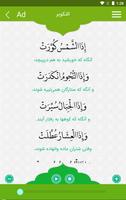 1:28
Ad
التکویر
إِذَا الشَّمْسُ كُوِّرَتْ
آنگاه که خورشید به هم درپیچد
وَإِذَا النُّجُومُ انكَدَرَتْ
و آنگه که ستارگان همی‌تیره شوند
وَإِذَا الْجِبَالُ سُيِّرَتْ
و آنگاه که کوهها به رفتار آیند
وَإِذَا الْعِشَارُ عُطِّلَتْ
وقتی شتران ماده وانهاده شوند